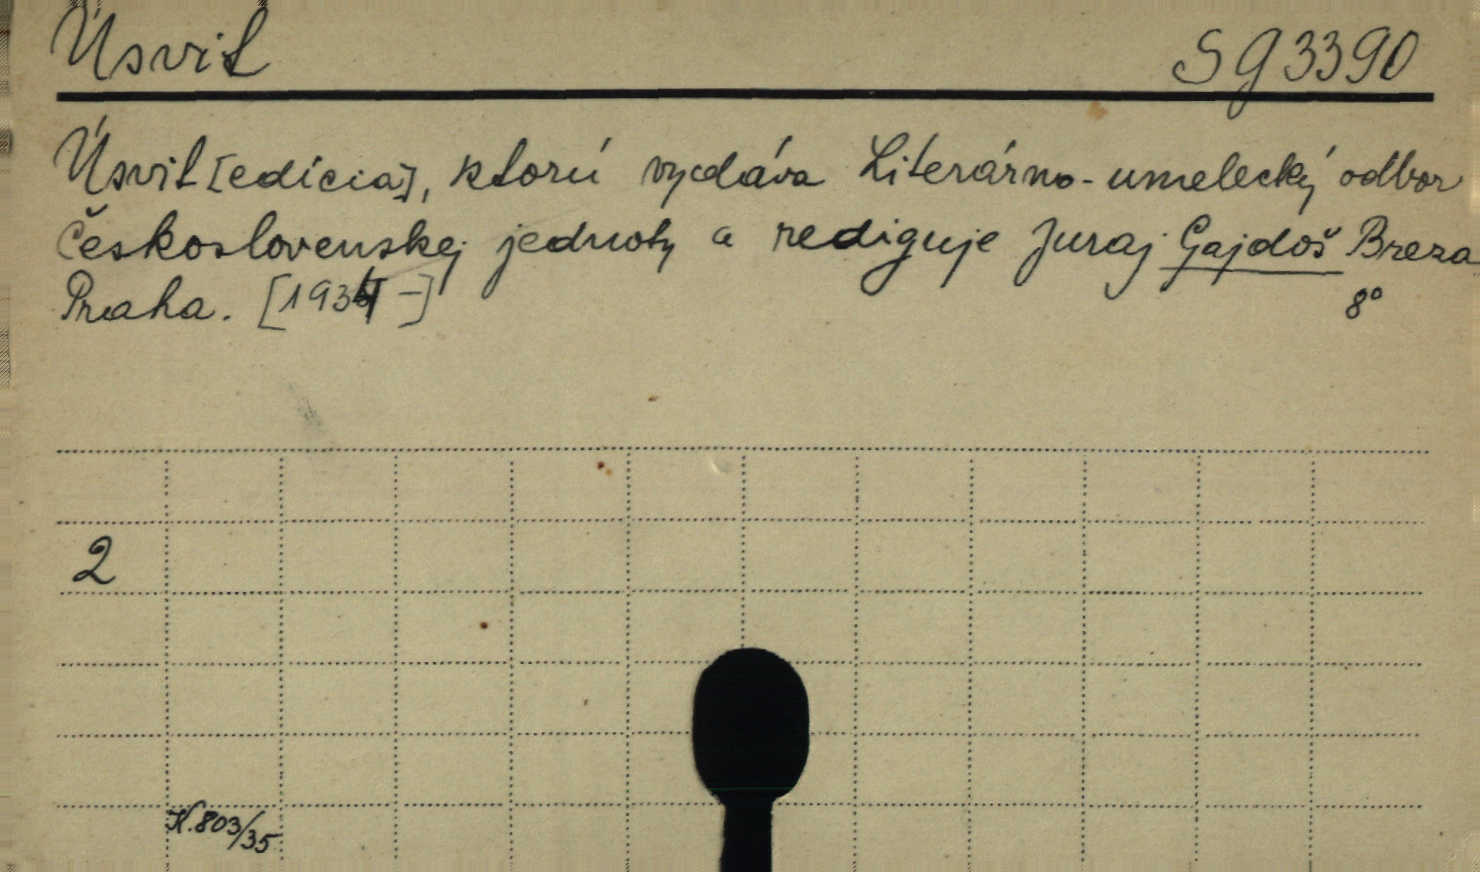 Úsvit SG3390
Úsvit [edícia], ktorú vydáva Literárno-umelecký odbor
Československej jednoty a rediguje Juraj Gajdoš Breza
Praha. [1934-] 8°
2
N. 803/35